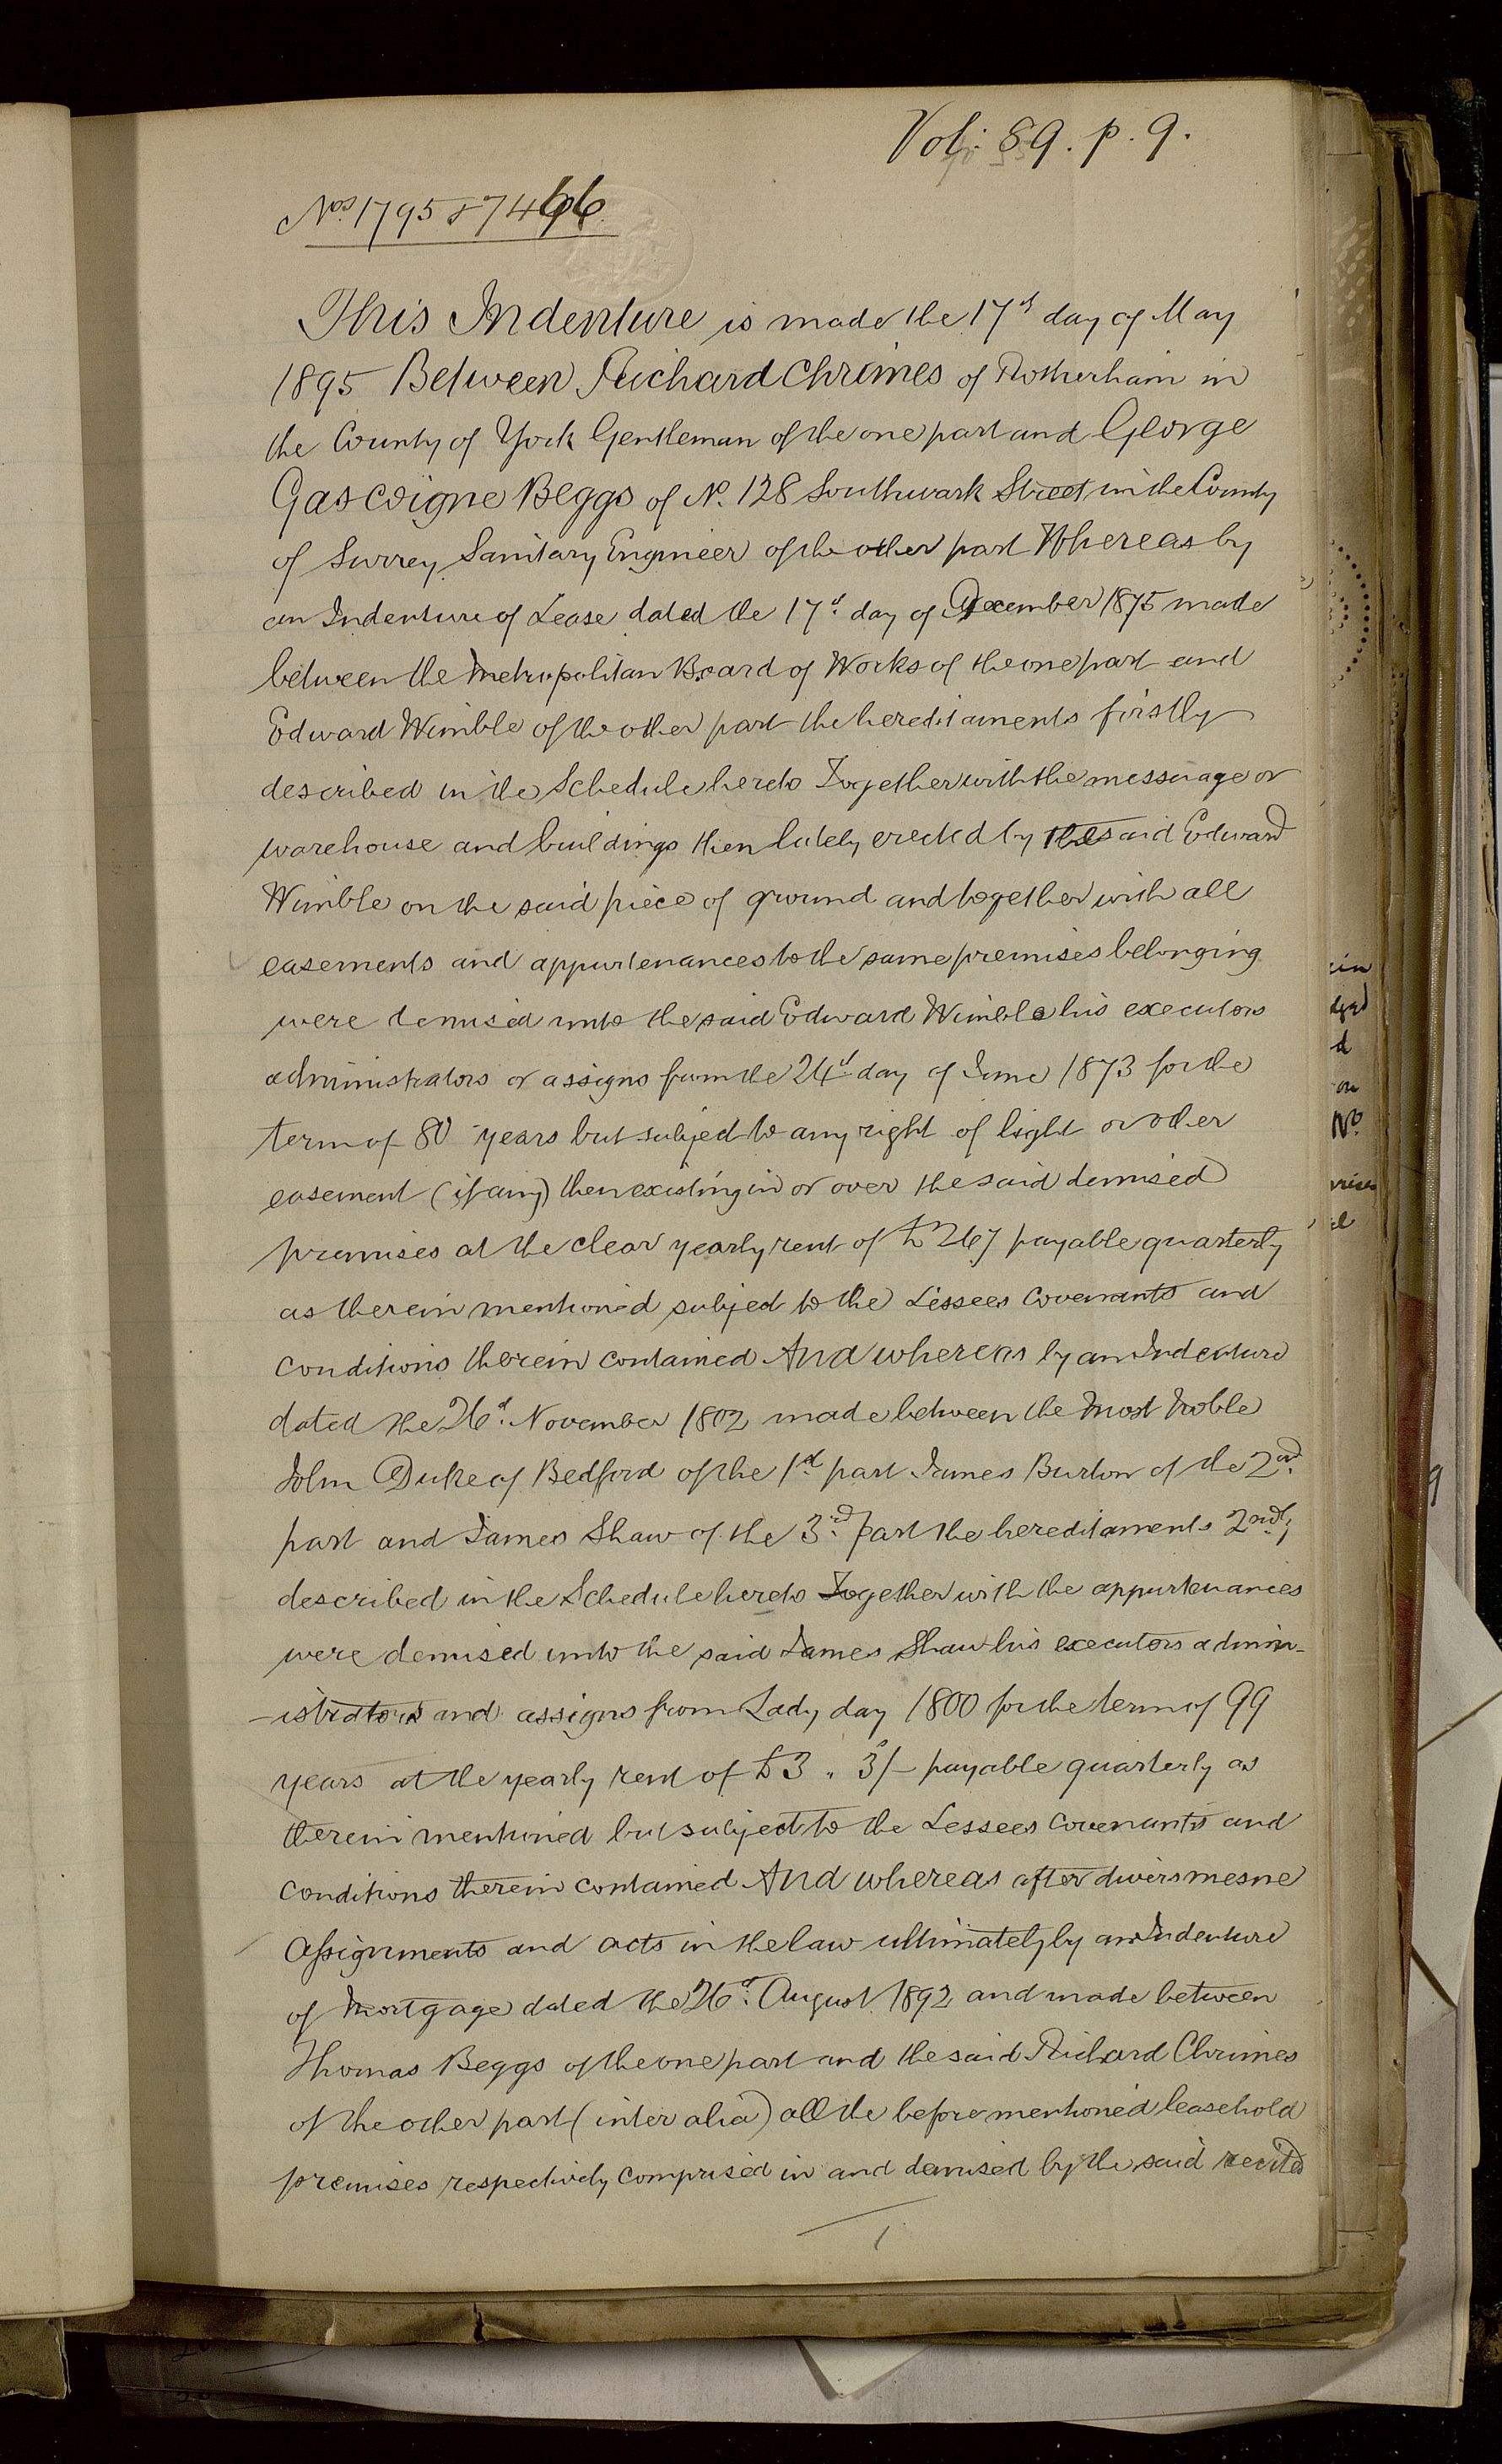 Vol: 89. p. 9.
Nos. 1795 & 7466.
This Indenture is made the 17th day of May
1895 Between Richard Chrimes of Rotherham in
the County of York Gentleman of the one part and George
Gascoigne Beggs of No. 128 Southwark Street in the County
of Surrey Sanitary Engineer of the other part Whereas by
an Indenture of Lease dated the 17th day of December 1875 made
between the Metropolitan Board of Works of the one part and
Edward Wimble of the other part the hereditaments firstly
described in the Schedule hereto Together with the messuage or
warehouse and buildings then lately erected by the said Edward
Wimble on the said piece of ground and together with all
easements and appurtenances to the same premises belonging
were demised unto the said Edward Wimble his executors
administrators or assigns from the 24th day of June 1873 for the
term of 80 years but subject to any right of light or other
easement (if any) then existing in or over the said demised
premises at the clear yearly rent of £267 payable quarterly
as therein mentioned subject to the Lessees covenants and
conditions therein contained And whereas by an Indenture
dated the 26th November 1802 made between the Most Noble
John Duke of Bedford of the 1st part James Burton of the 2nd
part and James Shaw of the 3rd part the hereditaments 2ndly
described in the Schedule hereto Together with the appurtenances
were demised unto the said James Shaw his executors admin-
-istrators and assigns from Lady day 1800 for the term of 99
years at the yearly rent of £3 " 3s/- payable quarterly as
therein mentioned but subject to the Lessees covenants and
conditions therein contained And whereas after divers mesne
assignments and acts in the law ultimately by an Indenture
of Mortgage dated the 26th August 1892 and made between
Thomas Beggs of the one part and the said Richard Chrimes
of the other part (inter alia) all the before mentioned leasehold
premises respectively comprised in and demised by the said recited
1